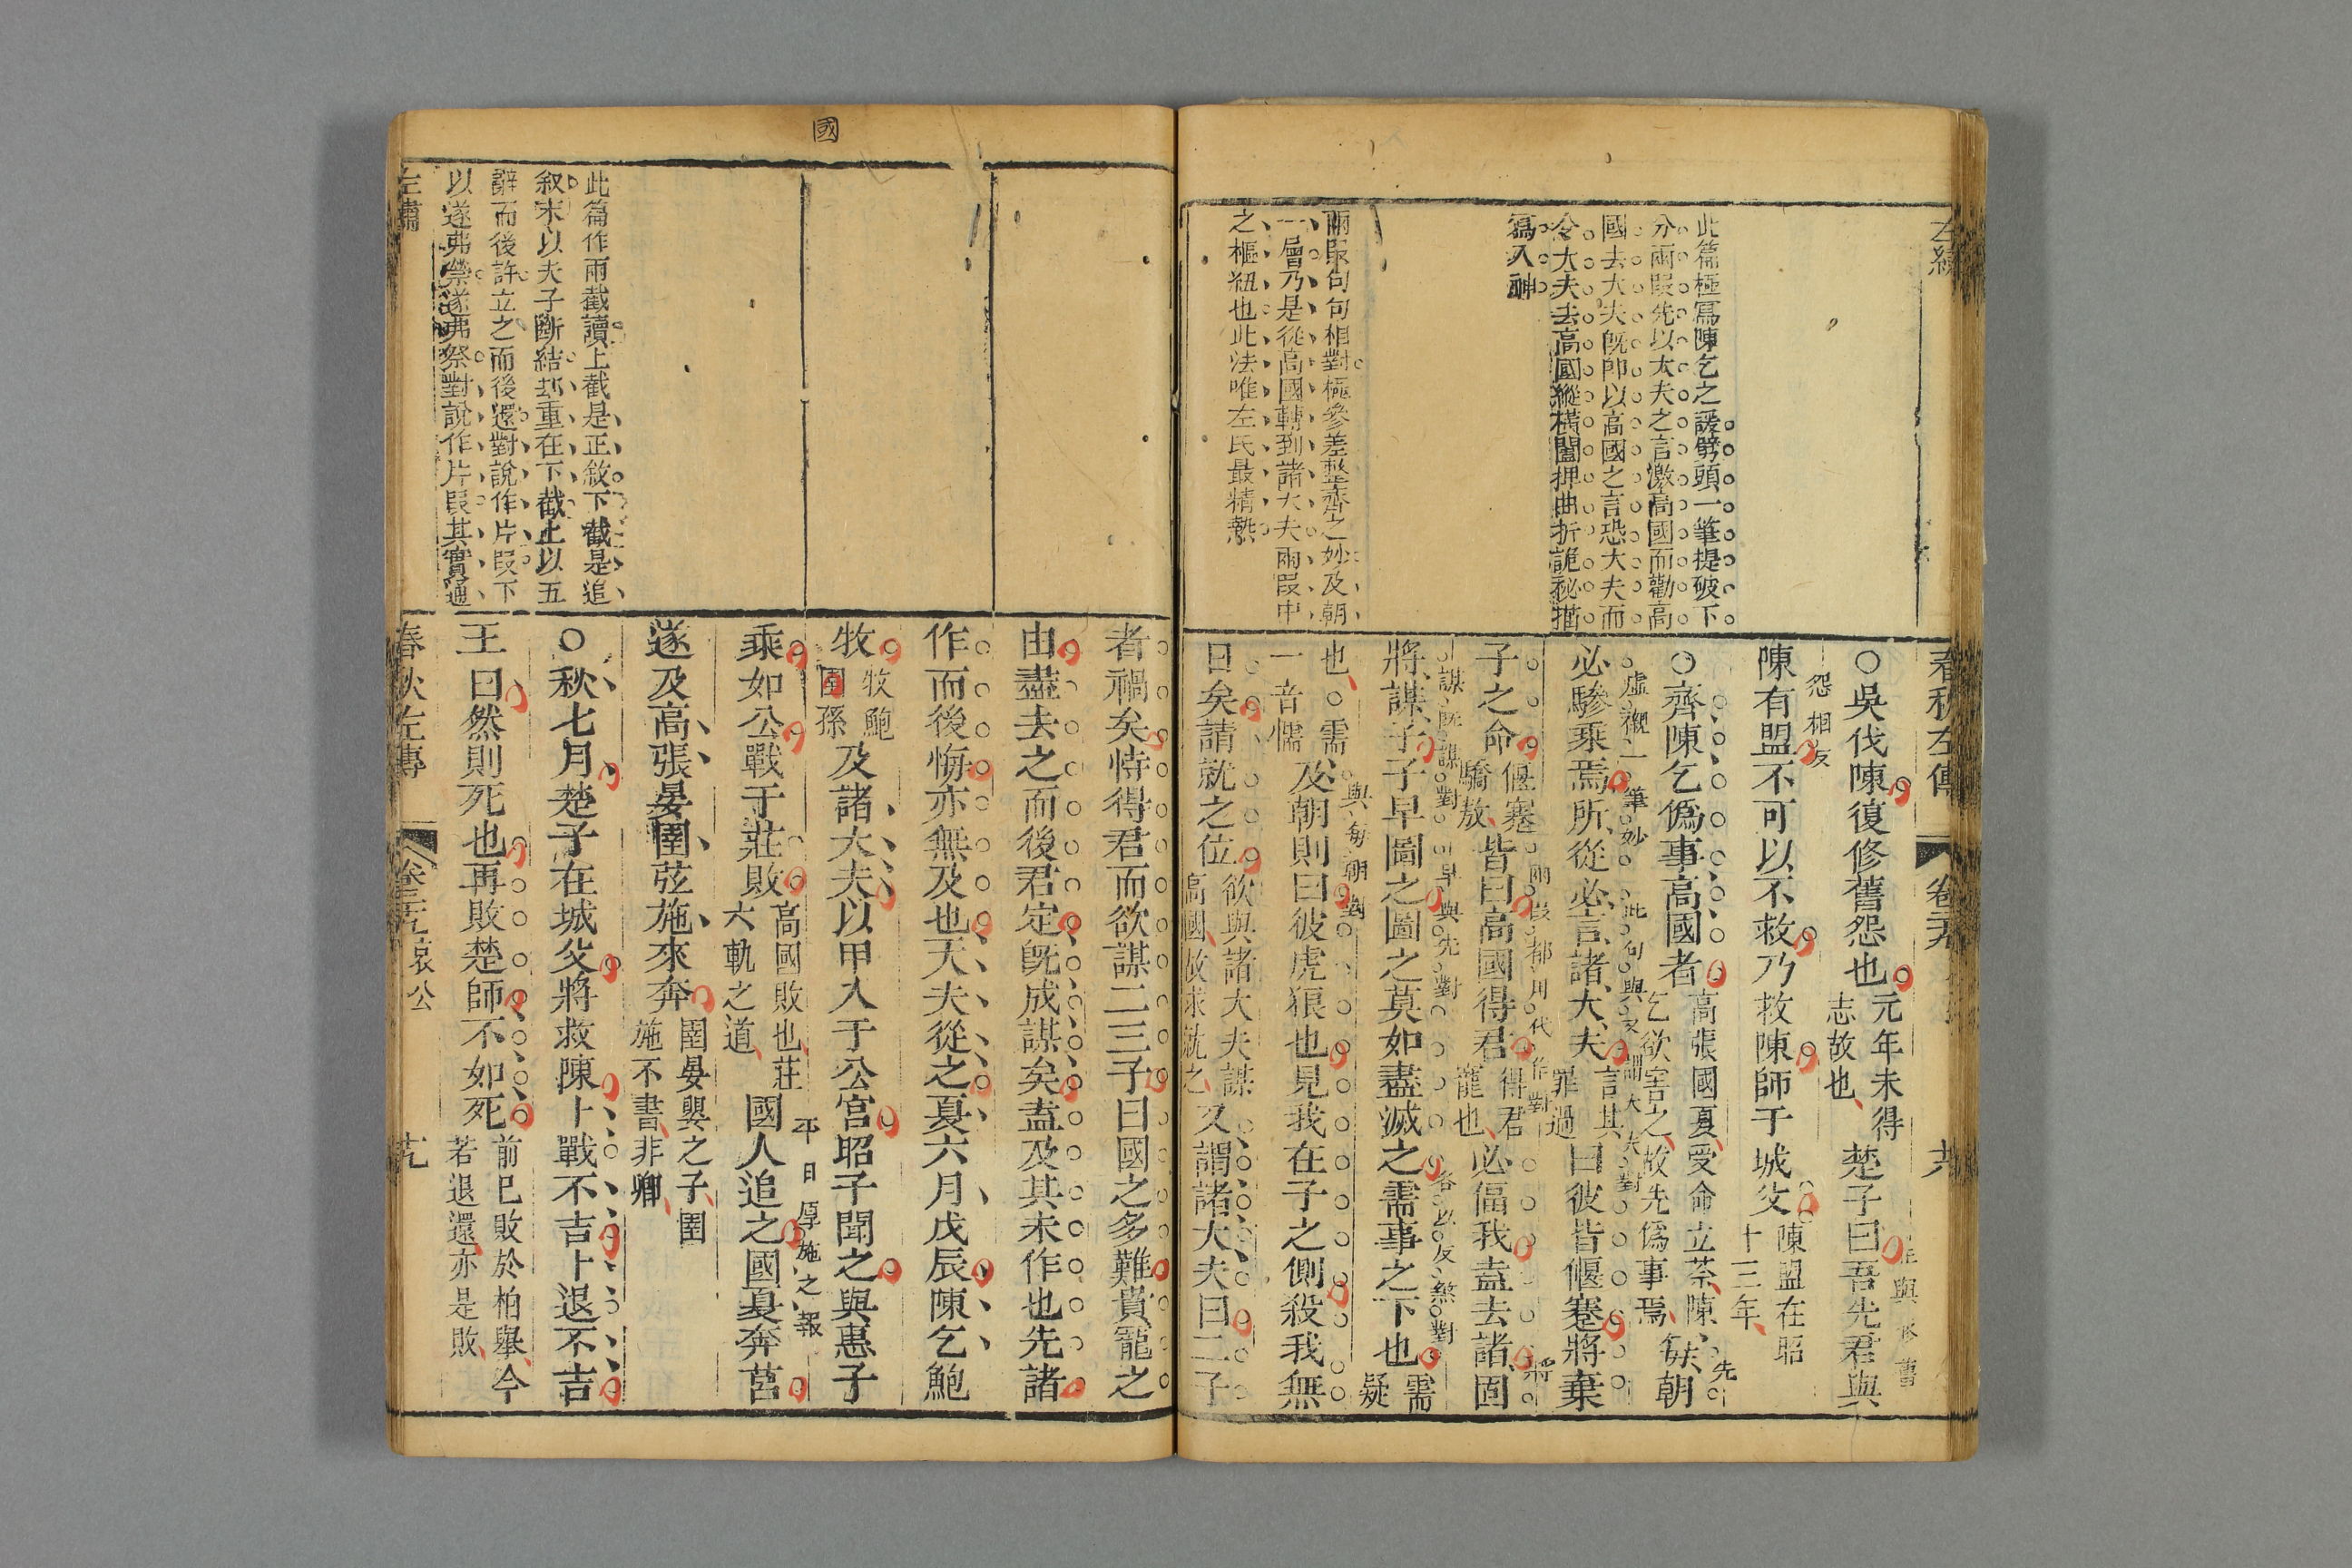 左繡
此篇極寫陳乞之諼劈頭一筆提破下
分兩段先以大夫之言激高國而勸高
國去大夫旣卽以高國之言恐大夫而
令大夫去高國縱橫闔押曲折詭祕描
寫入神
兩段句句相對極參差整齊之妙及朝
一層乃是從高國轉到諸大夫兩段中
之樞紐也此法唯左氏最精熟
春秋左傳
○吳伐陳復修舊怨也元年未得志故也楚子曰吾先君與
怨相反
陳有盟不可以不救乃救陳師于城父陳盟在昭十三年
○齊陳乞僞事高國者高張國夏受命立荼陳乞欲害之故先僞事焉每朝
虛襯一筆妙
必驂乘焉所從必言諸大夫言其罪過曰彼皆偃蹇將棄
子之命偃蹇驕敖皆曰高國得君得君寵也必偪我盍去諸固將
謀旣謀對早與先對
將謀子子早圖之圖之莫如盡滅之需事之下也需疑
也○需音懦一及朝則曰彼虎狼也見我在子之側殺我無
與每朝對
日矣請就之位欲與諸大夫謀高國故求就之又謂諸大夫曰二子
國
者禍矣恃得君而欲謀二三子曰國之多難貴寵之
由盡去之而後君定旣成謀矣盍及其未作也先諸
作而後悔亦無及也大夫從之夏六月戊辰陳乞鮑
牧牧鮑圉孫及諸大夫以甲入于公宮昭子聞之與惠子
乘如公戰于莊敗高國敗也莊六軌之道國人追之國夏奔莒
平日厚施之報
遂及高張晏圉弦施來奔圉晏嬰之子圉施不書非卿
此篇作兩截讀上截是正敘下截是追
叙末以夫子斷結却重在下截上以五
辭而後許立之而後還對說作片段下
以遂弗禜遂弗祭對說作片段其實通
○秋七月楚子在城父將救陳卜戰不吉卜退不吉
王曰然則死也再敗楚師不如死前已敗於柏舉今若退還亦是敗
左繡
春秋左傳
哀公